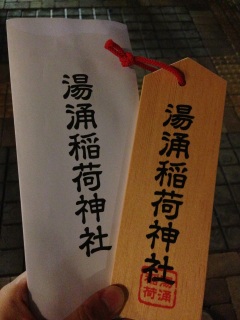 湯涌稲荷神社
湯涌稲荷神社
湯涌
稲荷